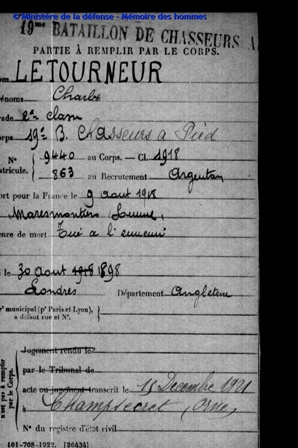 ©Ministère de la défense - Mémoire des hommes
19me BATAILLON DE CHASSEURS A
PARTIE À REMPLIR PAR LE CORPS.
om LETOURNEUR
énoms Charles
rade 2e classe
orps 19e B. Chasseurs à Pied
N° 9440 au Corps. — Cl. 1918
atricule. 863 au Recrutement Argentan
ort pour la France le 9 août 1918
Maresmontiers (Somme)
enre de mort Tué à l'ennemi
é le 30 août 1918 1898
Londres Département Angleterre
r municipal (pr Paris et Lyon),
à défaut rue et N°.
Jugement rendu le
par le Tribunal de
acte ou jugement transcrit le 15 Décembre 1921
à Champsecret (Orne)
N° du registre d'état civil
n'est pas à remplir
par le Corps.
101-708-1922. [26434]